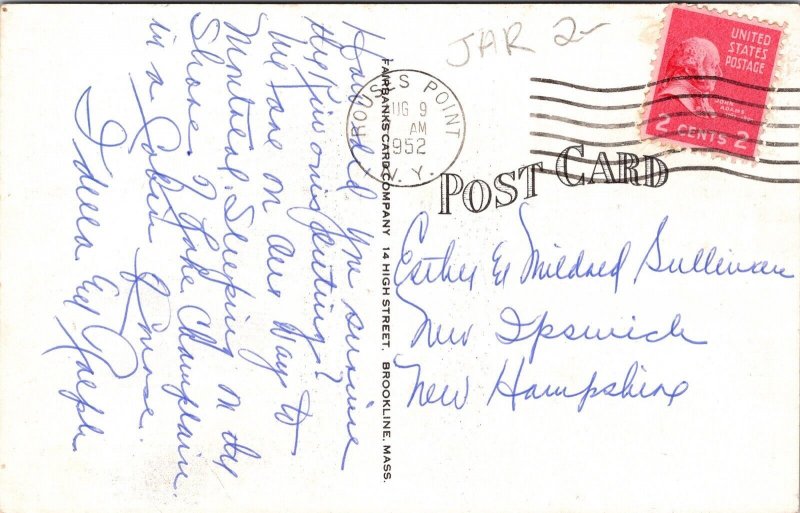 JAR 2-
ROUSES POINT
AUG 9
AM
1952
N.Y.
UNITED
STATES
POSTAGE
JOHN
ADAMS
2 CENTS 2
POST CARD
How did you survive
the Kiwanis outing?
We are on our way to
Montreal. Sleeping on the
Shore of Lake Champlain
in a Cabin of Course.
Idella & Ralph.
FAIRBANKS CARD COMPANY 14 HIGH STREET, BROOKLINE, MASS.
Esther & Mildred Sullivan
New Ipswich
New Hampshire